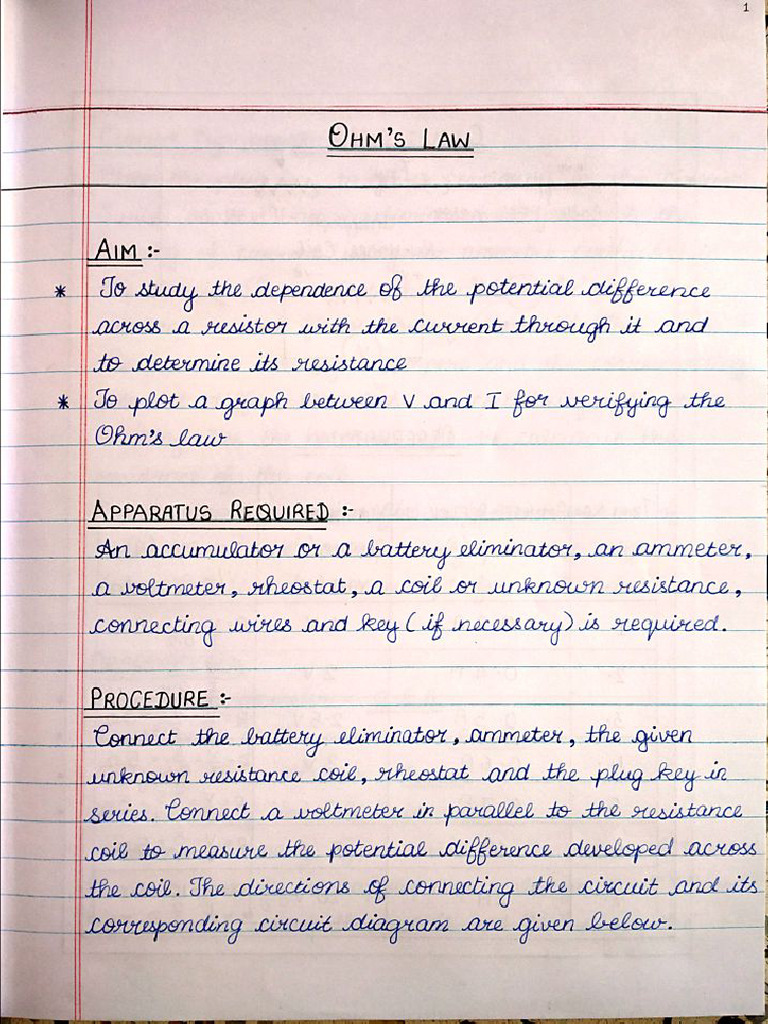 1
OHM'S LAW
AIM :-
* To study the dependence of the potential difference
across a resistor with the current through it and
to determine its resistance
* To plot a graph between V and I for verifying the
Ohm's law
APPARATUS REQUIRED :-
An accumulator or a battery eliminator, an ammeter,
a voltmeter, rheostat, a coil or unknown resistance,
connecting wires and key (if necessary) is required.
PROCEDURE :-
Connect the battery eliminator, ammeter, the given
unknown resistance coil, rheostat and the plug key in
series. Connect a voltmeter in parallel to the resistance
coil to measure the potential difference developed across
the coil. The directions of connecting the circuit and its
corresponding circuit diagram are given below.